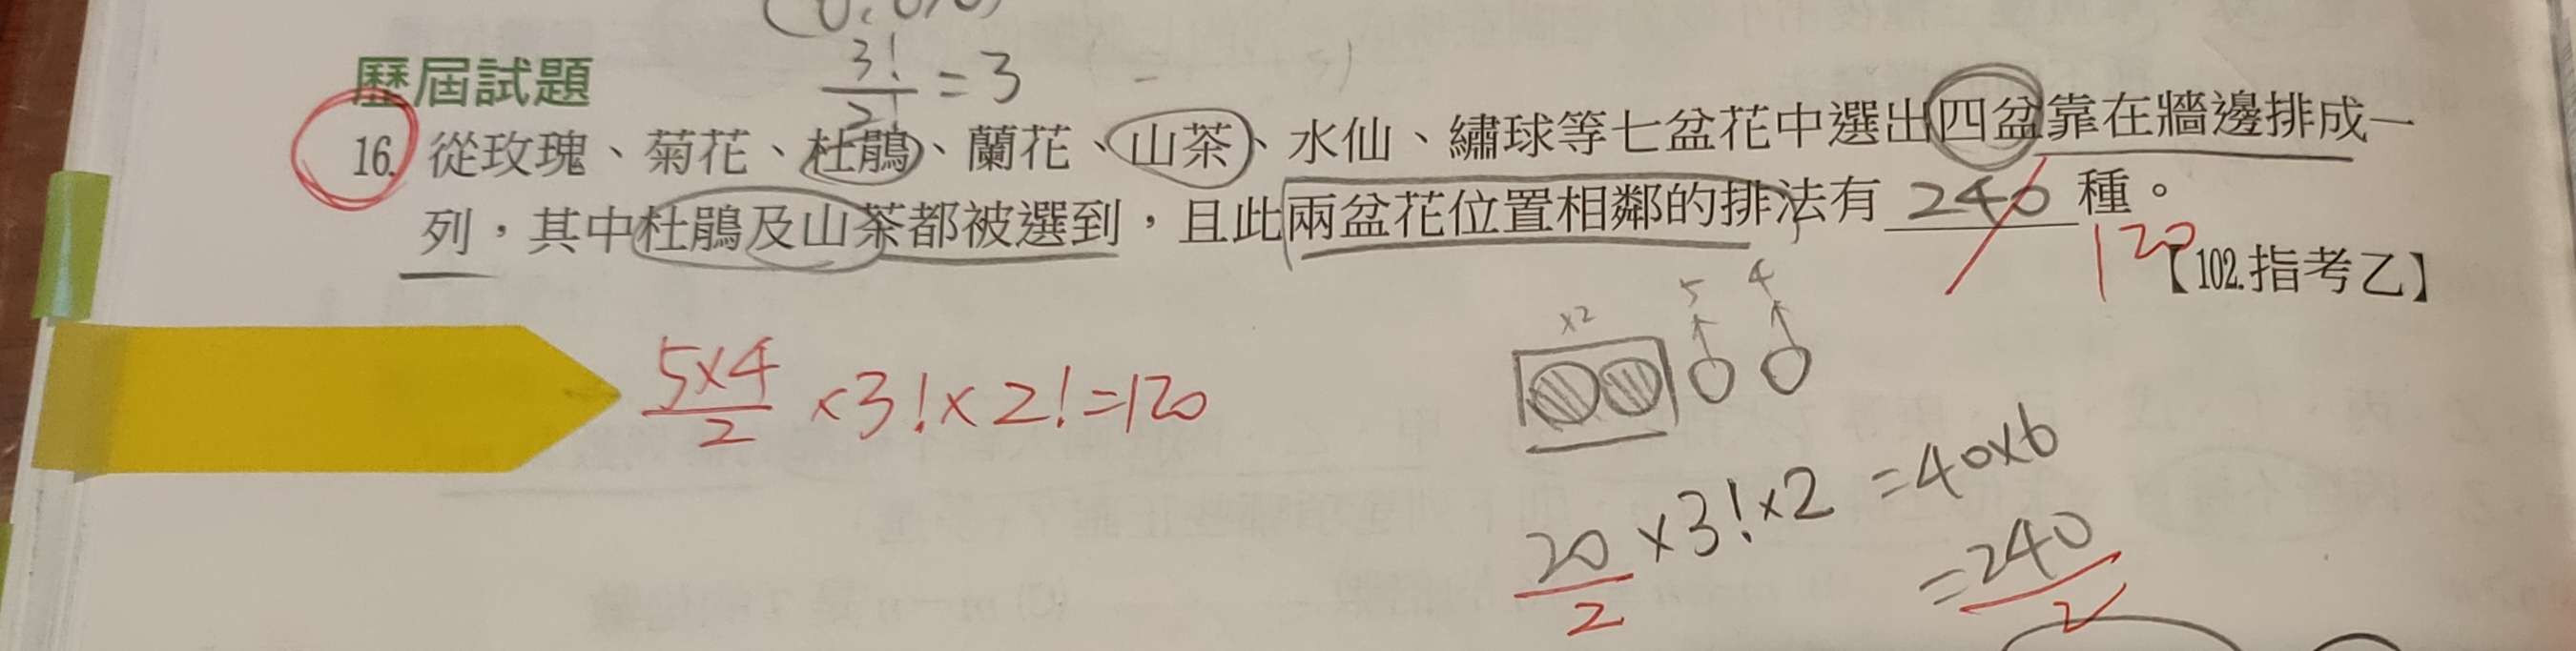 3!/2! = 3
歷屆試題
16. 從玫瑰、菊花、杜鵑、蘭花、山茶、水仙、繡球等七盆花中選出四盆靠在牆邊排成一
列,其中杜鵑及山茶都被選到,且此兩盆花位置相鄰的排法有 240 種。
120
【102.指考乙】
×2 5 4
5×4/2 ×3!×2!=120
20/2 ×3!×2 =40×6
=240/2